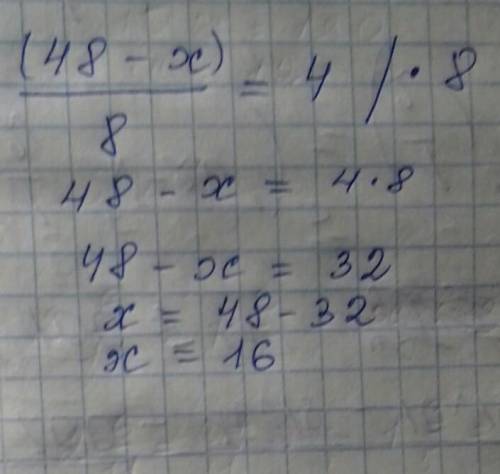 (48 - x) / 8 = 4 / · 8
48 - x = 4 · 8
48 - x = 32
x = 48 - 32
x = 16